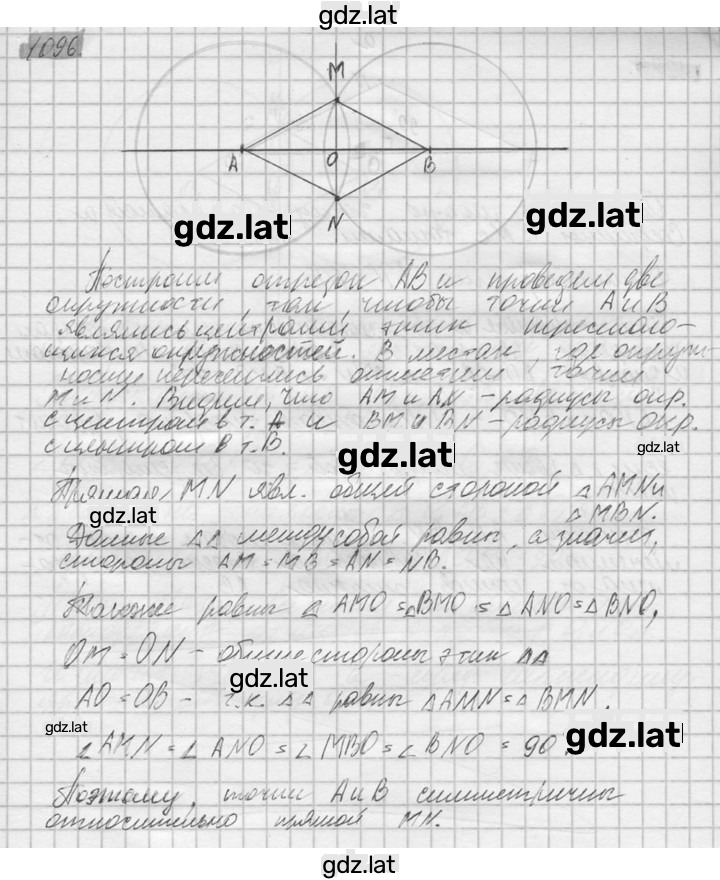 gdz.lat
1096.
M
A O B
N
gdz.lat
gdz.lat
Построим отрезок AB и проведем две
окружности, так, чтобы точки A и B
являлись центрами этих пересекаю-
щихся окружностей. В местах, где окруж-
ности пересеклись отметим точки
M и N. Видим, что AM и AN - радиусы окр.
с центром в т. A и BM и BN - радиусы окр.
с центром в т. B.
gdz.lat
gdz.lat
Прямая MN явл. общей стороной △AMN и
△MBN.
gdz.lat
Данные △△ между собой равны, а значит,
стороны AM = MB = AN = NB.
Также равны ∠AMO = ∠BMO = △ANO = △BNO,
OM = ON - общие стороны этих △△
gdz.lat
AO = OB - т.к. △△ равны △AMN = △BMN.
gdz.lat
∠AMN = ∠ANO = ∠MBO = ∠BNO = 90
gdz.lat
Поэтому, точки A и B симметричны
относительно прямой MN.
gdz.lat